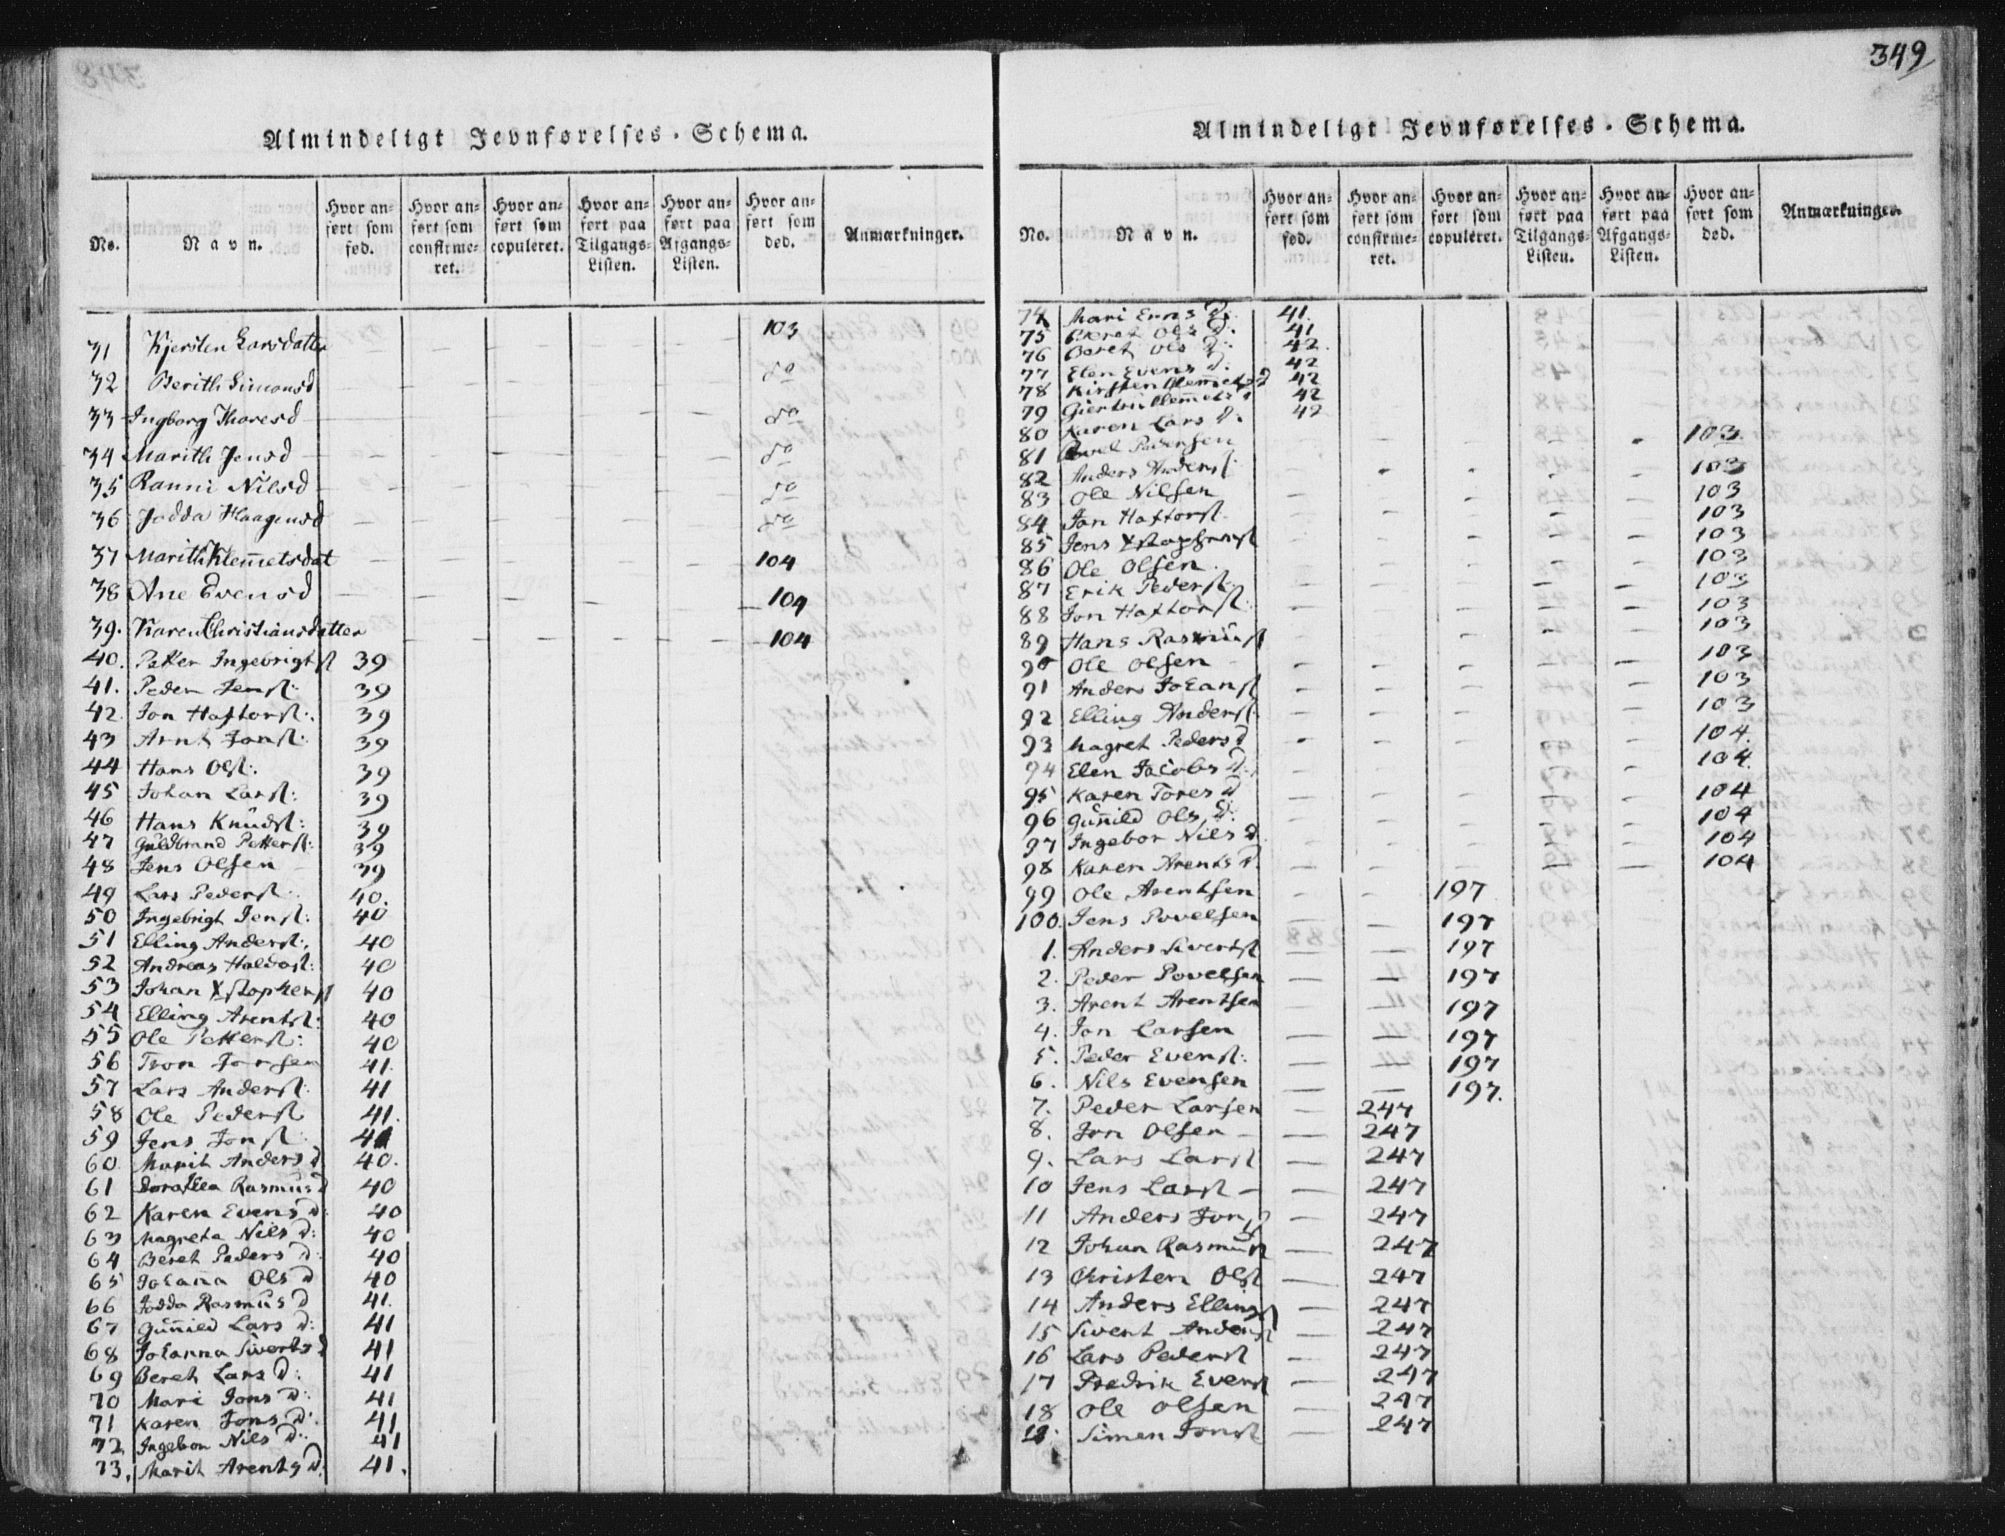 349
Almindeligt Jevnførelses-Schema.
No. Navn. Hvor anført som fød. Hvor anført som confirmeret. Hvor anført som copuleret. Hvor anført paa Tilgangs-Listen. Hvor anført paa Afgangs-Listen. Hvor anført som død. Anmærkninger.
31 Kjersten Larsdatter 103
32 Berith Simonsd do
33 Ingborg Thoresd do
34 Marith Jensd do
35 Ranni Nilsd do
36 Jodda Haagensd do
37 Marith Klem̅etsdat 104
38 Ane Evensd 104
39. Karen Christiansdatter 104
40. Petter Ingebrigtsł 39
41. Peder Jensł: 39
42. Jon Haftorsł: 39
43 Arnt Jonsł: 39
44 Hans Olsł: 39
45 Johan Larsł: 39
46 Hans Knudsł: 39
47 Guldbrand Pettersł: 39
48 Jens Olsen 39
49 Lars Pedersł: 40.
50 Ingebrigt Jensł: 40
51 Elling Andersł: 40
52 Andreas Haldosł: 40
53 Johan Xstophersł 40
54 Elling Arentsł: 40
55 Ole Pettersł: 40
56 Tron Jonsen 41.
57 Lars Andersł: 41
58 Ole Pedersł 41.
59 Jens Jonsł: 41
60 Marit Anders d 40.
61 Dorothea Rasmus d 40
62 Karen Evens d: 40
63 Magreta Nils d: 40
64 Beret Peders d: 40
65 Johan̅a Ols d 40
66 Jodda Rasmus d 41.
67 Gun̅ild Lars d: 41
68 Johanna Siverts d 41
69 Beret Lars d: 41
70 Mari Jons d: 41
71 Karen Jons d: 41
72 Ingebor Nils d: 41
73. Marit Arents d: 41.
Almindeligt Jevnførelses-Schema.
No. Navn. Hvor anført som fød. Hvor anført som confirmeret. Hvor anført som copuleret. Hvor anført paa Tilgangs-Listen. Hvor anført paa Afgangs-Listen. Hvor anført som død. Anmærkninger.
74 Mari Enns d: 41.
75 Beret Ols d: 41
76 Beret Ols d: 42.
77 Elen Evens d: 42
78 Kirsten Klem̅ets d 42
79 Giertru Klem̅ets d 42
80 Karen Lars d. 42
81 Povel Pedersen 103.
82 Anders Andersł: 103
83 Ole Nilsen 103
84 Jon Haftorsł. 103
85 Jens Xstophersł 103
86 Ole Olsen. 103
87 Erik Pedersł: 103
88 Jon Haftorsł: 103
89 Hans Rasmusł 103
90 Ole Olsen 103
91 Anders Johansł 103
92 Elling Andersł 103
93 Magret Peders d 104.
94 Elen Jacobs d. 104.
95 Karen Tores d 104
96 Gun̅ild Ols d: 104
97 Ingebor Nils d. 104
98 Karen Arents d. 104
99 Ole Arentsen 197
100. Jens Povelsen 197
1. Anders Sivertsł 197
2. Peder Povelsen 197
3. Arent Arentsen 197
4. Jon Larsen 197
5. Peder Evensł: 197
6. Nils Evensen 197.
7. Peder Larsen 247
8. Jon Olsen 247
9. Lars Larsł 247
10 Jens Larsł 247
11 Anders Jonsł 247
12 Johan Rasmusł 247
13 Christen Olsł 247
14 Anders Ellingsł 247
15 Sivert Andersł 247
16 Lars Pedersł 247
17 Fredrik Evensł 247
18 Ole Olsen 247
19. Simen Jonsł 247